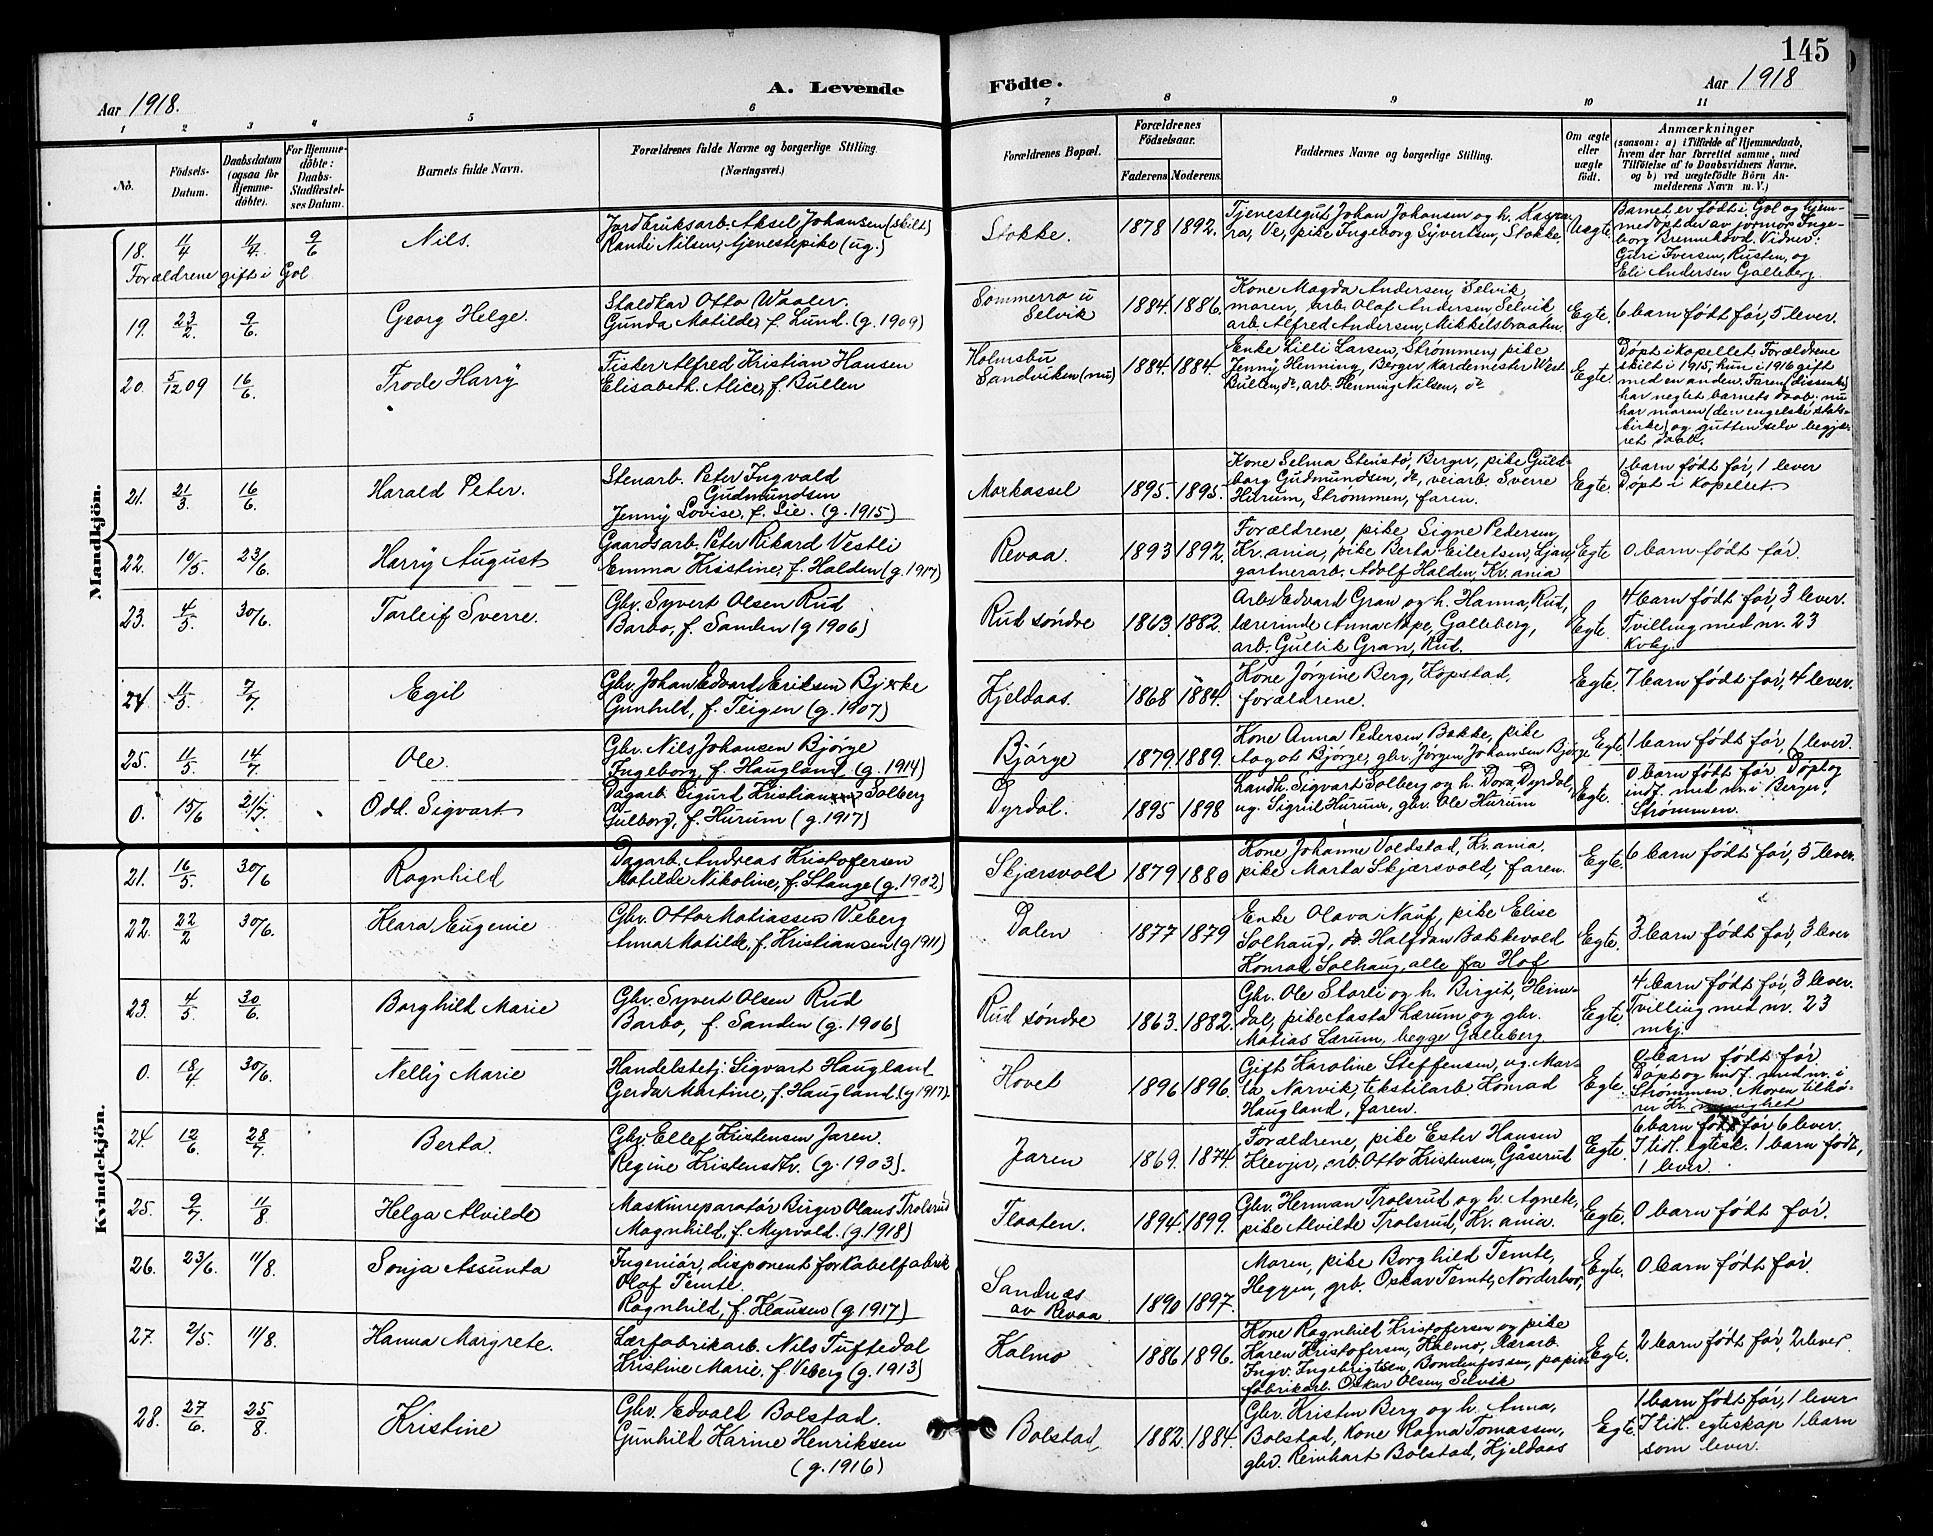 145
Aar 1918.
A. Levende
Födte.
Aar 1918
1 2 3 4 5 6 7 8 9 10 11
No.
Födsels-
Datum.
Daabsdatum
(ogsaa for
Hjemme-
döbte).
For Hjemme-
döbte:
Daabs-
Stadfæstel-
ses Datum.
Barnets fulde Navn.
Forældrenes fulde Navne og borgerlige Stilling.
(Næringsvei.)
Forældrenes Bopæl.
Forældrenes
Födselsaar.
Faderens. Moderens.
Faddernes Navne og borgerlige Stilling.
Om ægte
eller
uægte
födt.
Anmærkninger
(saasom: a) i Tilfælde af Hjemmedaab,
hvem der har forrettet samme, med
Tilföielse af to Daabsvidners Navne.
og b) ved uægtefödte Börn An-
melderens Navn m. V.)
Mandkjön.
18. 11/4 11/4 9/6 Nils.
Forældrene gift i Gol
Jordbruksarb. Aksel Johansen (skilt)
Randi Nilsen, tjenestepike (ug.)
Stokke. 1878 1892.
Tjenestegut Johan Johansen og h. Kaspa-
ra, Ve, pike Ingeborg Syvertsen, Stokke.
Uegte.
Barnet er født i Gol og hjem-
medøpt der av jormor Inge-
borg Brennhovd. Vidner:
Guri Iversen, Rusten, og
Eli Andersen Galleberg.
19. 23/2 9/6. Georg Helge.
Staldkar Otto Waaler.
Gunda Matilde, f. Lund. (g. 1909)
Sommerro u
Selvik 1884. 1886.
Kone Magda Andersen, Selvik
moren, arb. Olaf Andersen, Selvik,
arb. Alfred Andersen, Mikkelsbraaten.
Egte. 6 barn født før, 5 lever.
20. 5/12 09 16/6. Frode Harry
Fisker Alfred Kristian Hansen
Elisabeth Alice, f. Bullen
Holmsbu
Sandviken (nu) 1884. 1884.
Enke Lilli Larsen, Strømmen, pike
Jenny Henning, Berger, kardemester West
Bullen, do, arb. Henning Nilsen, do
Egte.
Døpt i kapellet. Forældrene
skilt i 1915, hun i 1916 gift
med en anden. Faren (dissenter)
har negtet barnets daab. nu
har moren (den engelske stats-
kirke) og gutten selv begjæ-
ret daab.
21. 21/3 16/6. Harald Peter.
Stenarb. Peter Ingvald
Gudmundsen
Jenny Lovise, f. Lie. (g. 1915)
Markassel 1895. 1895.
Kone Selma Stensto, Berger, pike Guld-
borg Gudmundsen, do, veiarb. Sverre
Hurum, Strømmen, faren.
Egte. 1 barn født før, 1 lever
Døpt i kapellet.
22. 10/5. 23/6. Harry August
Gaardsarb. Peter Rikard Vestli
Emma Kristine, f. Halden (g. 1917)
Revaa. 1893 1892.
Forældrene, pike Signe Pedersen,
Kr.ania, pike Berta Eilertsen, Ljan,
gartnerarb. Adolf Halden, Kr.ania
Egte 0 barn født før.
23. 4/5 30/6. Torleif Sverre.
Gbr. Syvert Olsen Rud
Barbo, f. Sanden (g 1906)
Rud søndre 1863. 1882.
Arb. Edvard Gran og h. Hanna, Rud,
lærerinde Anna Nøpe, Galleberg,
arb. Gullik Gran, Rud.
Egte. 4 barn født før, 3 lever.
Tvilling med nr. 23
Kvkj.
24 11/5 7/7 Egil
Gbr Johan Edvart Eriksen Bjerke
Gunhild, f. Teigen (g. 1907)
Kjeldaas. 1868 1884.
Kone Jørgine Berg, Kopstad,
forældrene.
Egte. 7 barn født før, 4 lever.
25. 11/5 14/7 Ole.
Gbr. Nils Johansen Bjørge
Ingeborg, f. Haugland. (g. 1914)
Bjørge 1879. 1889.
Kone Anna Pedersen Bakke, pike
Aagot Bjørge, gbr. Jørgen Johansen Bjørge
Egte. 1 barn født før, 1 lever.
0. 15/6 21/7. Odd Sigvart
Dagarb. Sigurd Kristian Solberg
Gulborg, f. Hurum (g. 1917)
Dyrdal. 1895 1898
Landh. Sigvart Solberg og h. Dora, Dyrdal,
ug. Sigrid Hurum, gbr. Ole Hurum
Egte. 0 barn født før. Døpt og
indf. med nr. i Berger,
Strømmen.
Kvindekjön.
21. 16/5. 30/6 Ragnhild
Dagarb. Andreas Kristofersen
Matilde Nikoline, f. Stange (g. 1902)
Skjærsvold 1879 1880
Kone Johanne Voldstad, Kr.ania,
pike Marta Skjærsvold, faren.
Egte. 6 barn født før, 5 lever.
22. 22/2 30/6. Klara Eugenie
Gbr. Otto Matiassen Veberg
Anna Matilde, f. Kristiansen (g 1911)
Dalen 1877 1879
Enke Olava Nauf, pike Elise
Solhaug, Halfdan Bakkevold
Konrad Solhaug, alle fra Hof
Egte. 3 barn født før, 3 lever
23. 4/5 30/6. Borghild Marie
Gbr. Syvert Olsen Rud
Barbo, f. Sanden (g. 1906)
Rud søndre 1863. 1882.
Gbr. Ole Storli og h. Birgit, Heim-
dal, pike Aasta Lærum og gbr.
Matias Lærum, begge Galleberg
Egte. 4 barn født før, 3 lever.
Tvilling med nr. 23
mkj.
0. 18/4 30/6. Nelly Marie
Handelsbetj. Sigvart Haugland
Gerda Martine, f. Haugland. (g 1917).
Hovet 1896 1896.
Gift Karoline Steffensen, ug. Mar-
ta Narvik, tekstilarb. Konrad
Haugland, faren.
Egte. 0 barn født før
Døpt og indf. med nr. i
Strømmen. Moren tilhø-
rer Kr.
24. 12/6 28/7 Berta.
Gbr. Ellef Kristensen Jaren.
Regine Kristensdtr. (g. 1903).
Jaren 1869. 1874.
Forældrene, pike Ester Hansen
Klevjer, arb. Otto Kristensen, Gåserud
Egte. 6 barn født før 6 lever.
I tidl. egtesk. 1 barn født,
1 lever.
25. 9/7. 11/8 Helga Alvilde
Maskinreparatør Birger Olaus Trolsrud
Magnhild, f. Myrvold. (g. 1918)
Flaaten. 1894. 1899.
Gbr. Herman Trolsrud og h. Agnete,
pike Alvilde Trolsrud, Kr.ania.
Egte. 0 barn født før.
26. 23/6. 11/8. Sonja Assunta
Ingeniør, disponent for kabelfabrik
Olaf Temte.
Ragnhild, f. Klausen (g. 1917)
Sandnæs
av Revaa 1890 1897.
Moren, pike Borghild Temte,
Heggen, grb. Oskar Temte, Norderhov,
Egte. 0 barn født før.
27. 2/5. 11/8. Hanna Margrete.
Lærfabrikarb. Nils Tuftedal
Kristine Marie, f. Veberg (g. 1913)
Kalmo 1886 1896.
Kone Ragnhild Kristofersen og pike
Karen Kristofersen, Kalmo, lærarb.
Ingv. Ingebrigtsen, Bondenfossen, papir-
fabrikarb. Oskar Olsen, Selvik
Egte. 2 barn født før, 2 lever
28. 27/6 25/8 Kristine
Gbr. Edvald Bolstad.
Gunhild Karine Henriksen
(g. 1916)
Bolstad. 1882. 1884.
Gbr. Kristen Berg og h. Anna,
Bolstad, Kone Ragna Tomassen,
gbr. Reinhart Bolstad, Kjeldaas
Egte. 1 barn født før, 1 lever
I tidl. egteskap 1 barn
som lever.